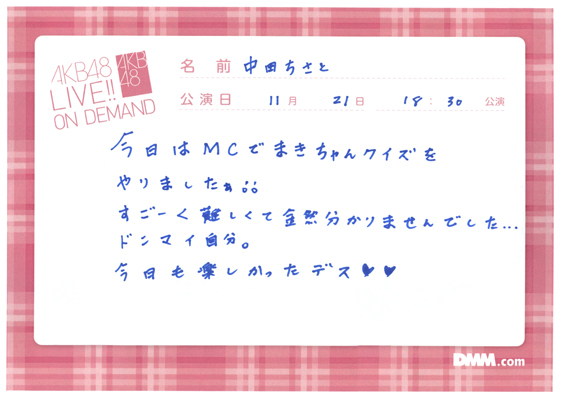 AKB48
LIVE!!
ON DEMAND
AKB
48
名 前 中田ちさと
公演日 11月 21日 18:30 公演
今日はMCでまきちゃんクイズを
やりましたぁ¡¡
すごーく難しくて全然分かりませんでした...
ドンマイ自分。
今日も楽しかったデス♥♥
DMM.com